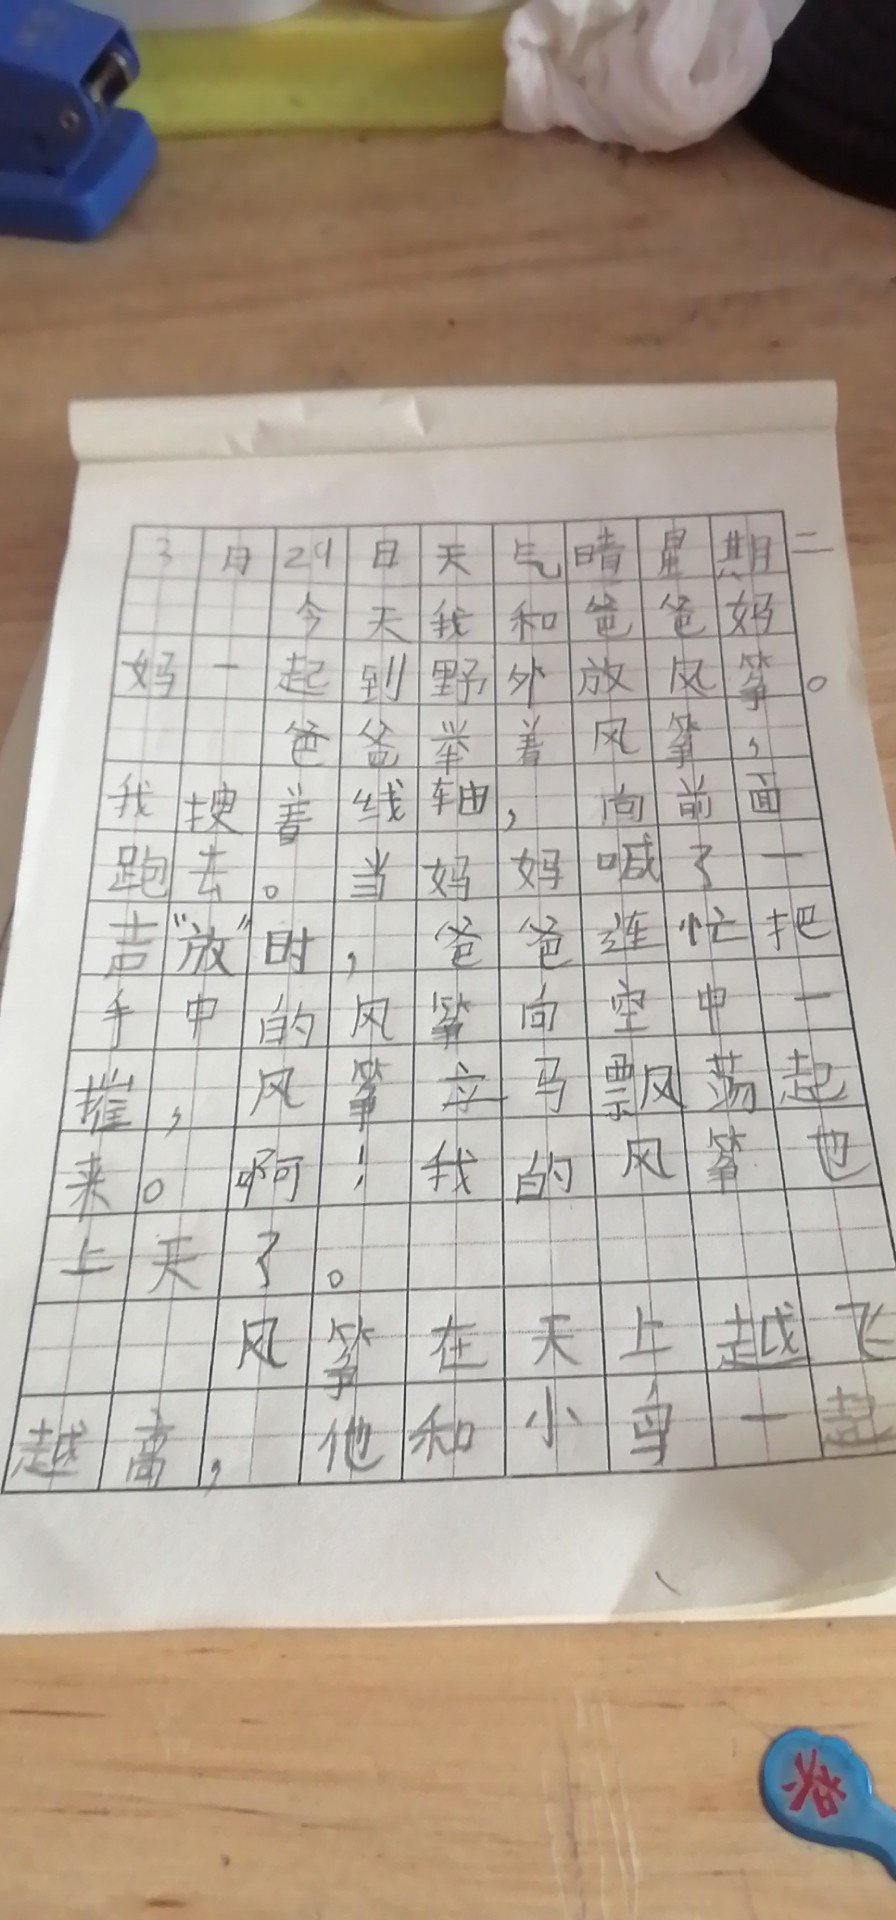 3月29日天气晴星期二
今天我和爸爸妈
妈一起到野外放风筝。
爸爸举着风筝，
我搜着线轴，向前面
跑去。当妈妈喊了一
声“放”时，爸爸连忙把
手中的风筝向空中一
摧，风筝立马飘荡起
来。啊！我的风筝也
上天了。
风筝在天上越飞
越高，他和小鸟一起